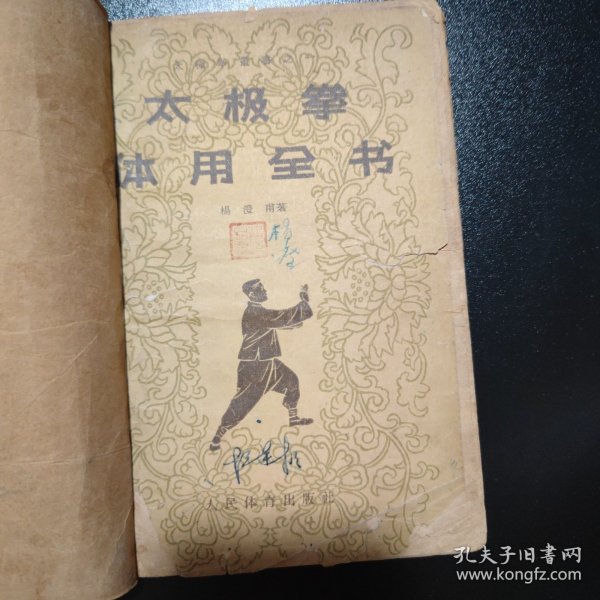 太极拳
体用全书
楊澄甫著
人民体育出版社
孔夫子旧书网
www.kongfz.com